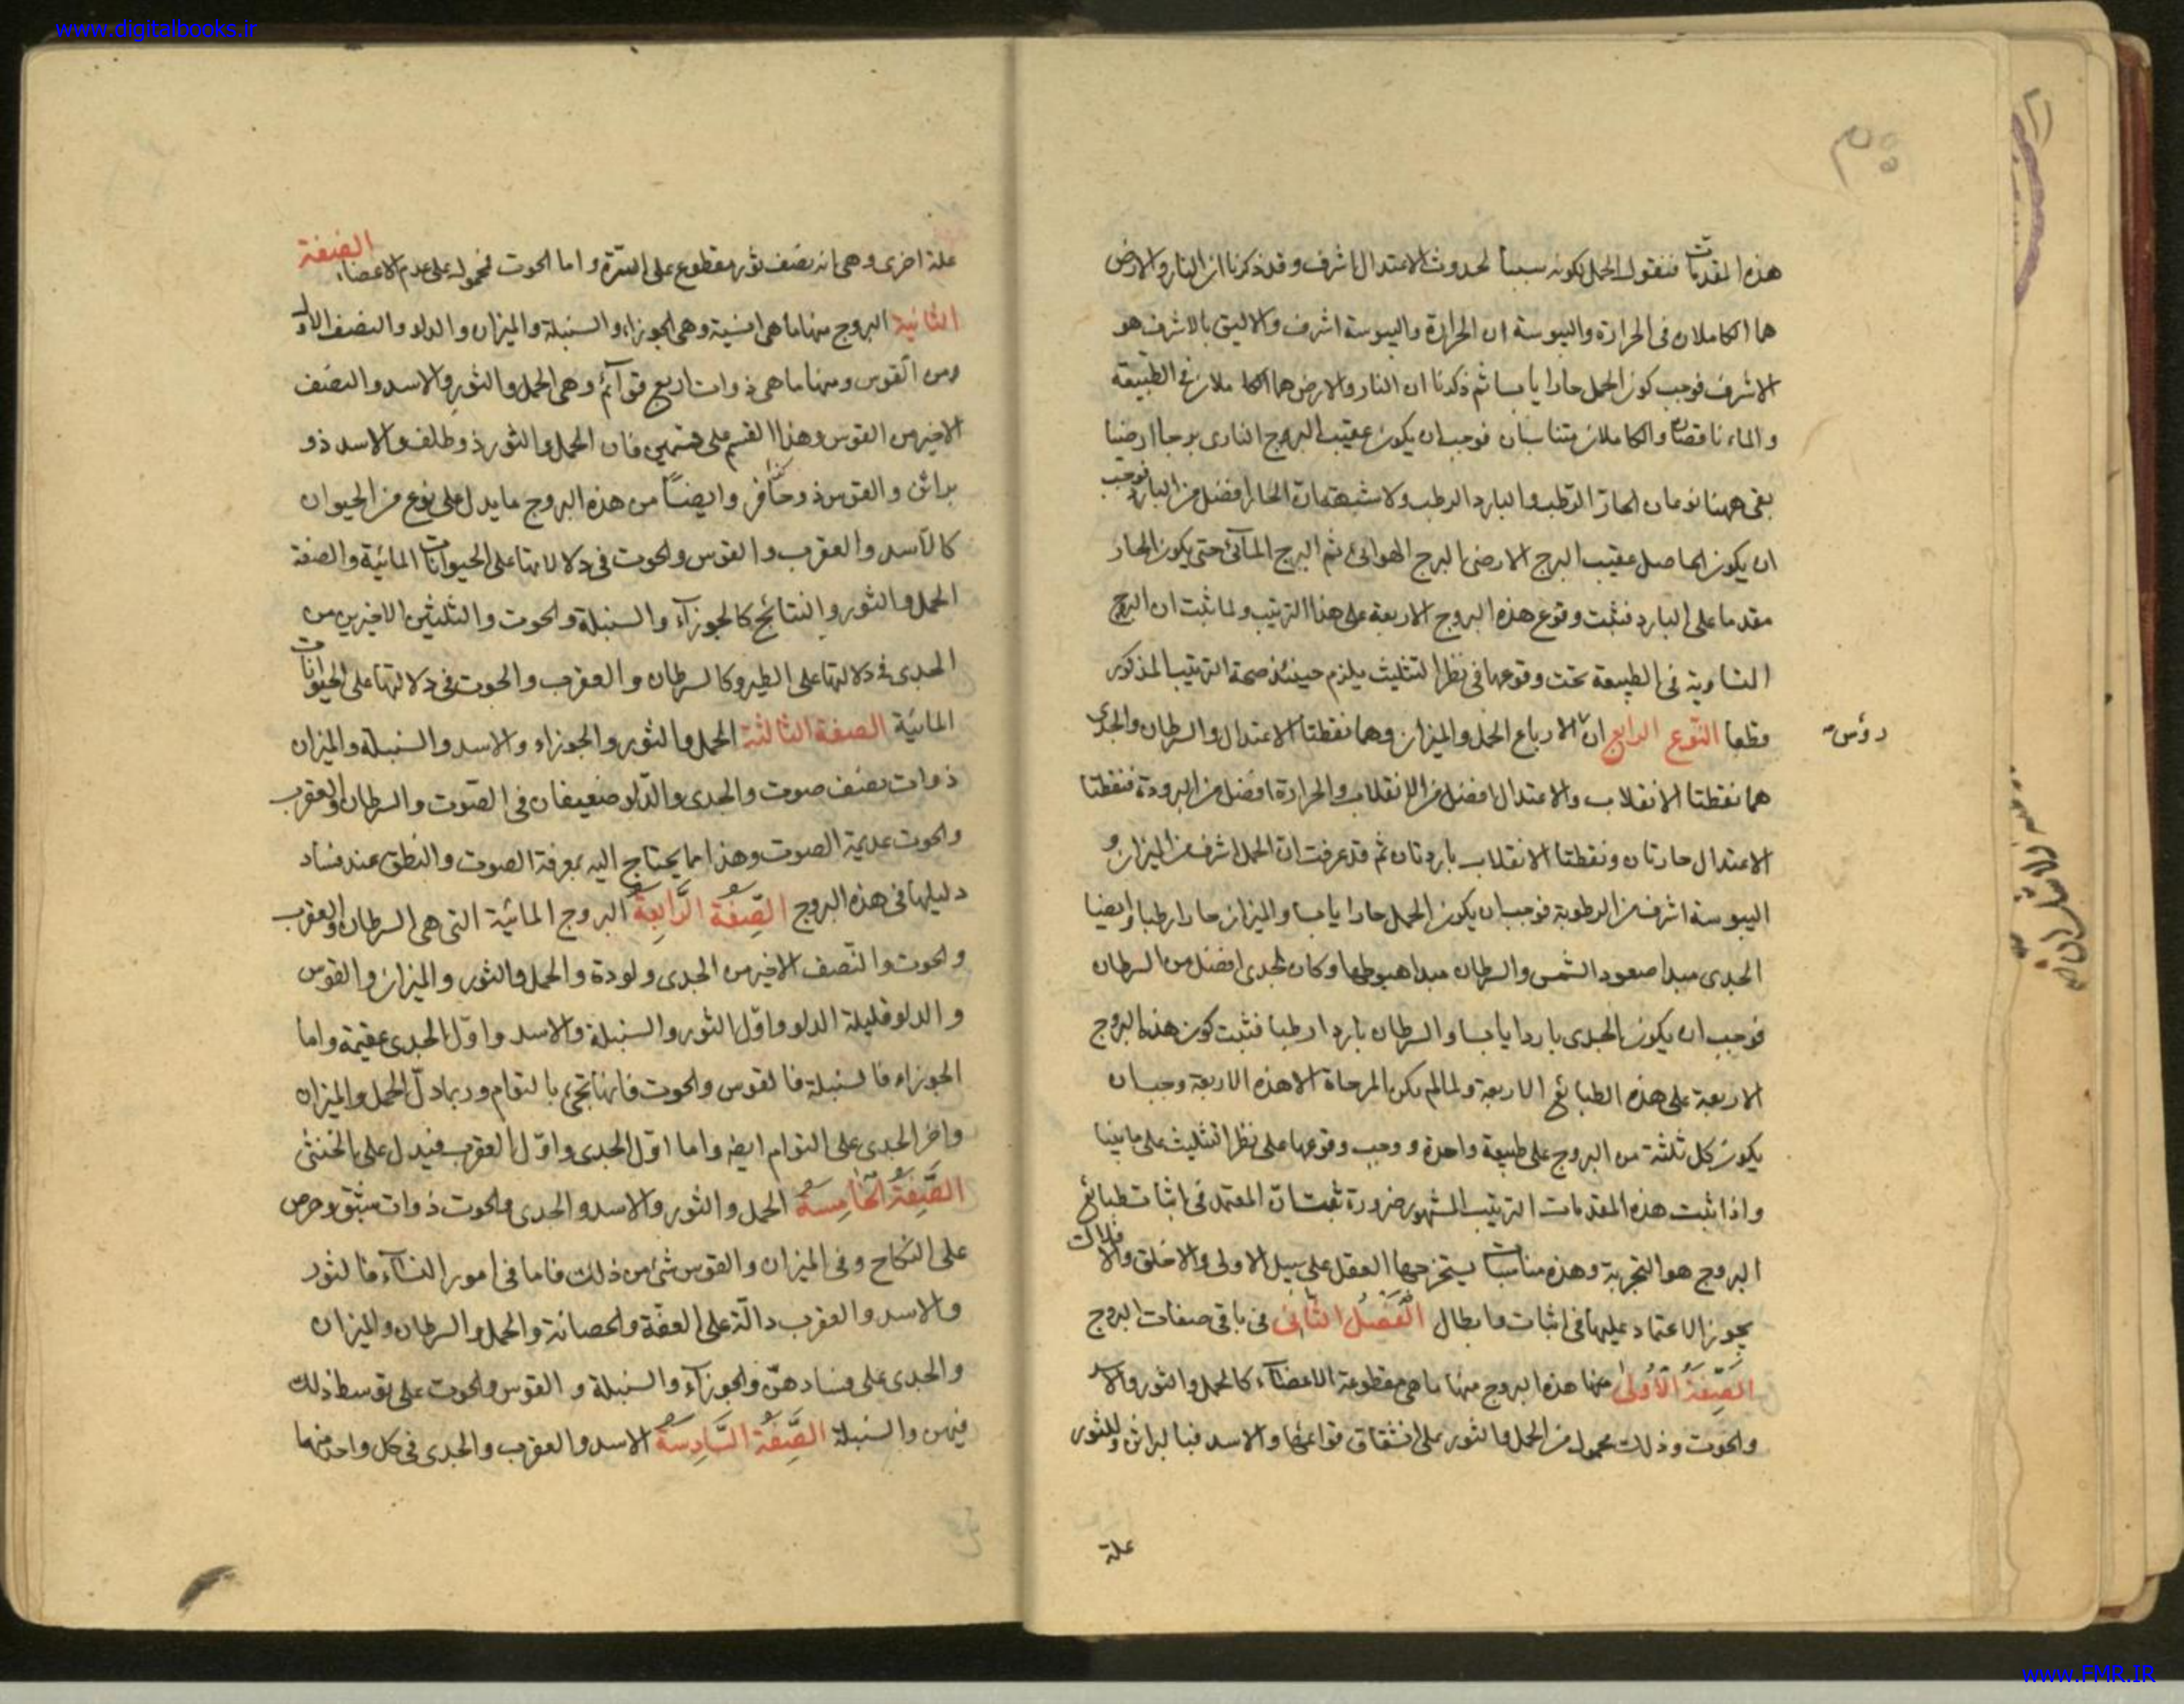 www.digitalbooks.ir
هذه المقدمات فنقول الحمل لكونه سببا لحدوث الاعتدال اشرف وقد ذكرنا ان النار والارض
هما الكاملان فى الحرارة واليبوسة ان الحرارة واليبوسة اشرف والاليق بالاشرف هو
الاشرف فوجب كون الحمل حارا يابسا ثم ذكرنا ان النار والارض هما الكاملان فى الطبيعة
والماء ناقصان والكاملان متناسبان فوجب ان يكون عقيب البرج النارى برجا ارضيا
بقى ههنا نوعان الحار الرطب والبارد الرطب ولا شبهة ان الحار افضل من البارد فوجب
ان يكون الحاصل عقيب البرج الارضى البرج الهوائى ثم البرج المآئى حتى يكون الحار
مقدما على البارد فثبت وقوع هذه البروج الاربعة على هذا الترتيب ولما ثبت ان البروج
المتساوية فى الطبيعة تحت وقوعها فى نظر التثليث يلزم حينئذ صحة الترتيب المذكور
قطعا النوع الرابع ان الارباع الحمل والميزان وهما نقطتا الاعتدال والسرطان والجدى
رؤس
هما نقطتا الانقلاب والاعتدال افضل من الانقلاب والحرارة افضل من البرودة فنقطتا
الاعتدال حارتان ونقطتا الانقلاب باردتان ثم قد عرفت ان الحمل اشرف من الميزان و
اليبوسة اشرف من الرطوبة فوجب ان يكون الحمل حارا يابسا والميزان حارا رطبا وايضا
الجدى مبدا صعود الشمس والسرطان مبدا هبوطها وكان الجدى افضل من السرطان
فوجب ان يكون الجدى باردا يابسا والسرطان باردا رطبا فثبت كون هذه البروج
الاربعة على هذه الطبائع الاربعة ولما لم يكن الا هذه الاربعة وجب ان
يكون كل ثلثة من البروج على طبيعة واحدة ووجب وقوعها على نظر التثليث على ما بينا
واذا ثبت هذه المقدمات الترتيب المشهور ضرورة ثبت ان المعتمد فى اثبات طبائع
البروج هو التجربة وهذه مناسبات يستخرجها العقل على سبيل الاولى والاخلق والا فلا
يجوز الاعتماد عليها فى اثبات وابطال الفصل الثانى فى باقى صفات البروج
الصفة الاولى منها هذه البروج منها ما هى مقطوعة الاعضآء كالحمل والثور والاسد
والحوت وذلك محمول من الحمل والثور على انشقاق قوائمها والاسد فبالبراثن وللثور
علة
علة اخرى وهى انه نصف ثور مقطوع على السرة واما الحوت فمحمول على عدم الاعضاء الصفة
الثانية البروج منها ما هى انسية وهى الجوزاء والسنبلة والميزان والدلو والنصف الاول
من القوس ومنها ما هى ذوات اربع قوآئم وهى الحمل والثور والاسد والنصف
الاخير من القوس وهذا القسم على قسمين فان الحمل والثور ذو ظلف والاسد ذو
براثن والقوس ذو حافر وايضاً من هذه البروج ما يدل على نوع من الحيوان
كالاسد والعقرب والقوس والحوت فى دلالاتها على الحيوانات المائية والصفة
الحمل والثور والنتائج كالجوزآء والسنبلة والحوت والثلثين الاخيرين من
الجدى فى دلالتها على الطير وكالسرطان والعقرب والحوت فى دلالتها على الحيوانات
المائية الصفة الثالثة الحمل والثور والجوزاء والاسد والسنبلة والميزان
ذوات نصف صوت والجدى والدلو ضعيفان فى الصوت والسرطان والعقرب
والحوت عديمة الصوت وهذا مما يحتاج اليه بمعرفة الصوت والنطق عند فساد
دليلها فى هذه البروج الصفة الرابعة البروج المائية التى هى السرطان والعقرب
والحوت والنصف الاخير من الجدى ولودة والحمل والثور والميزان والقوس
والدلو قليلة الولد واول الثور والسنبلة والاسد واول الجدى عقيمة واما
الجوزاء فالسنبلة فالقوس والحوت فانها تجئ بالتوام وربما دل الحمل والميزان
واخر الجدى على التوام ايضا واما اول الجدى واول العقرب فيدل على الخنثى
الصفة الخامسة الحمل والثور والاسد والجدى والحوت ذوات شبق وحرص
على النكاح وفى الميزان والقوس شئ من ذلك فاما فى امور النسآء فالثور
والاسد والعقرب دالة على العفة والحصانة والحمل والسرطان والميزان
والجدى على فسادهن والجوزآء والسنبلة والقوس والحوت على توسط ذلك
فيهن والسنبلة الصفة السادسة الاسد والعقرب والجدى فى كل واحد منها
www.FMR.IR